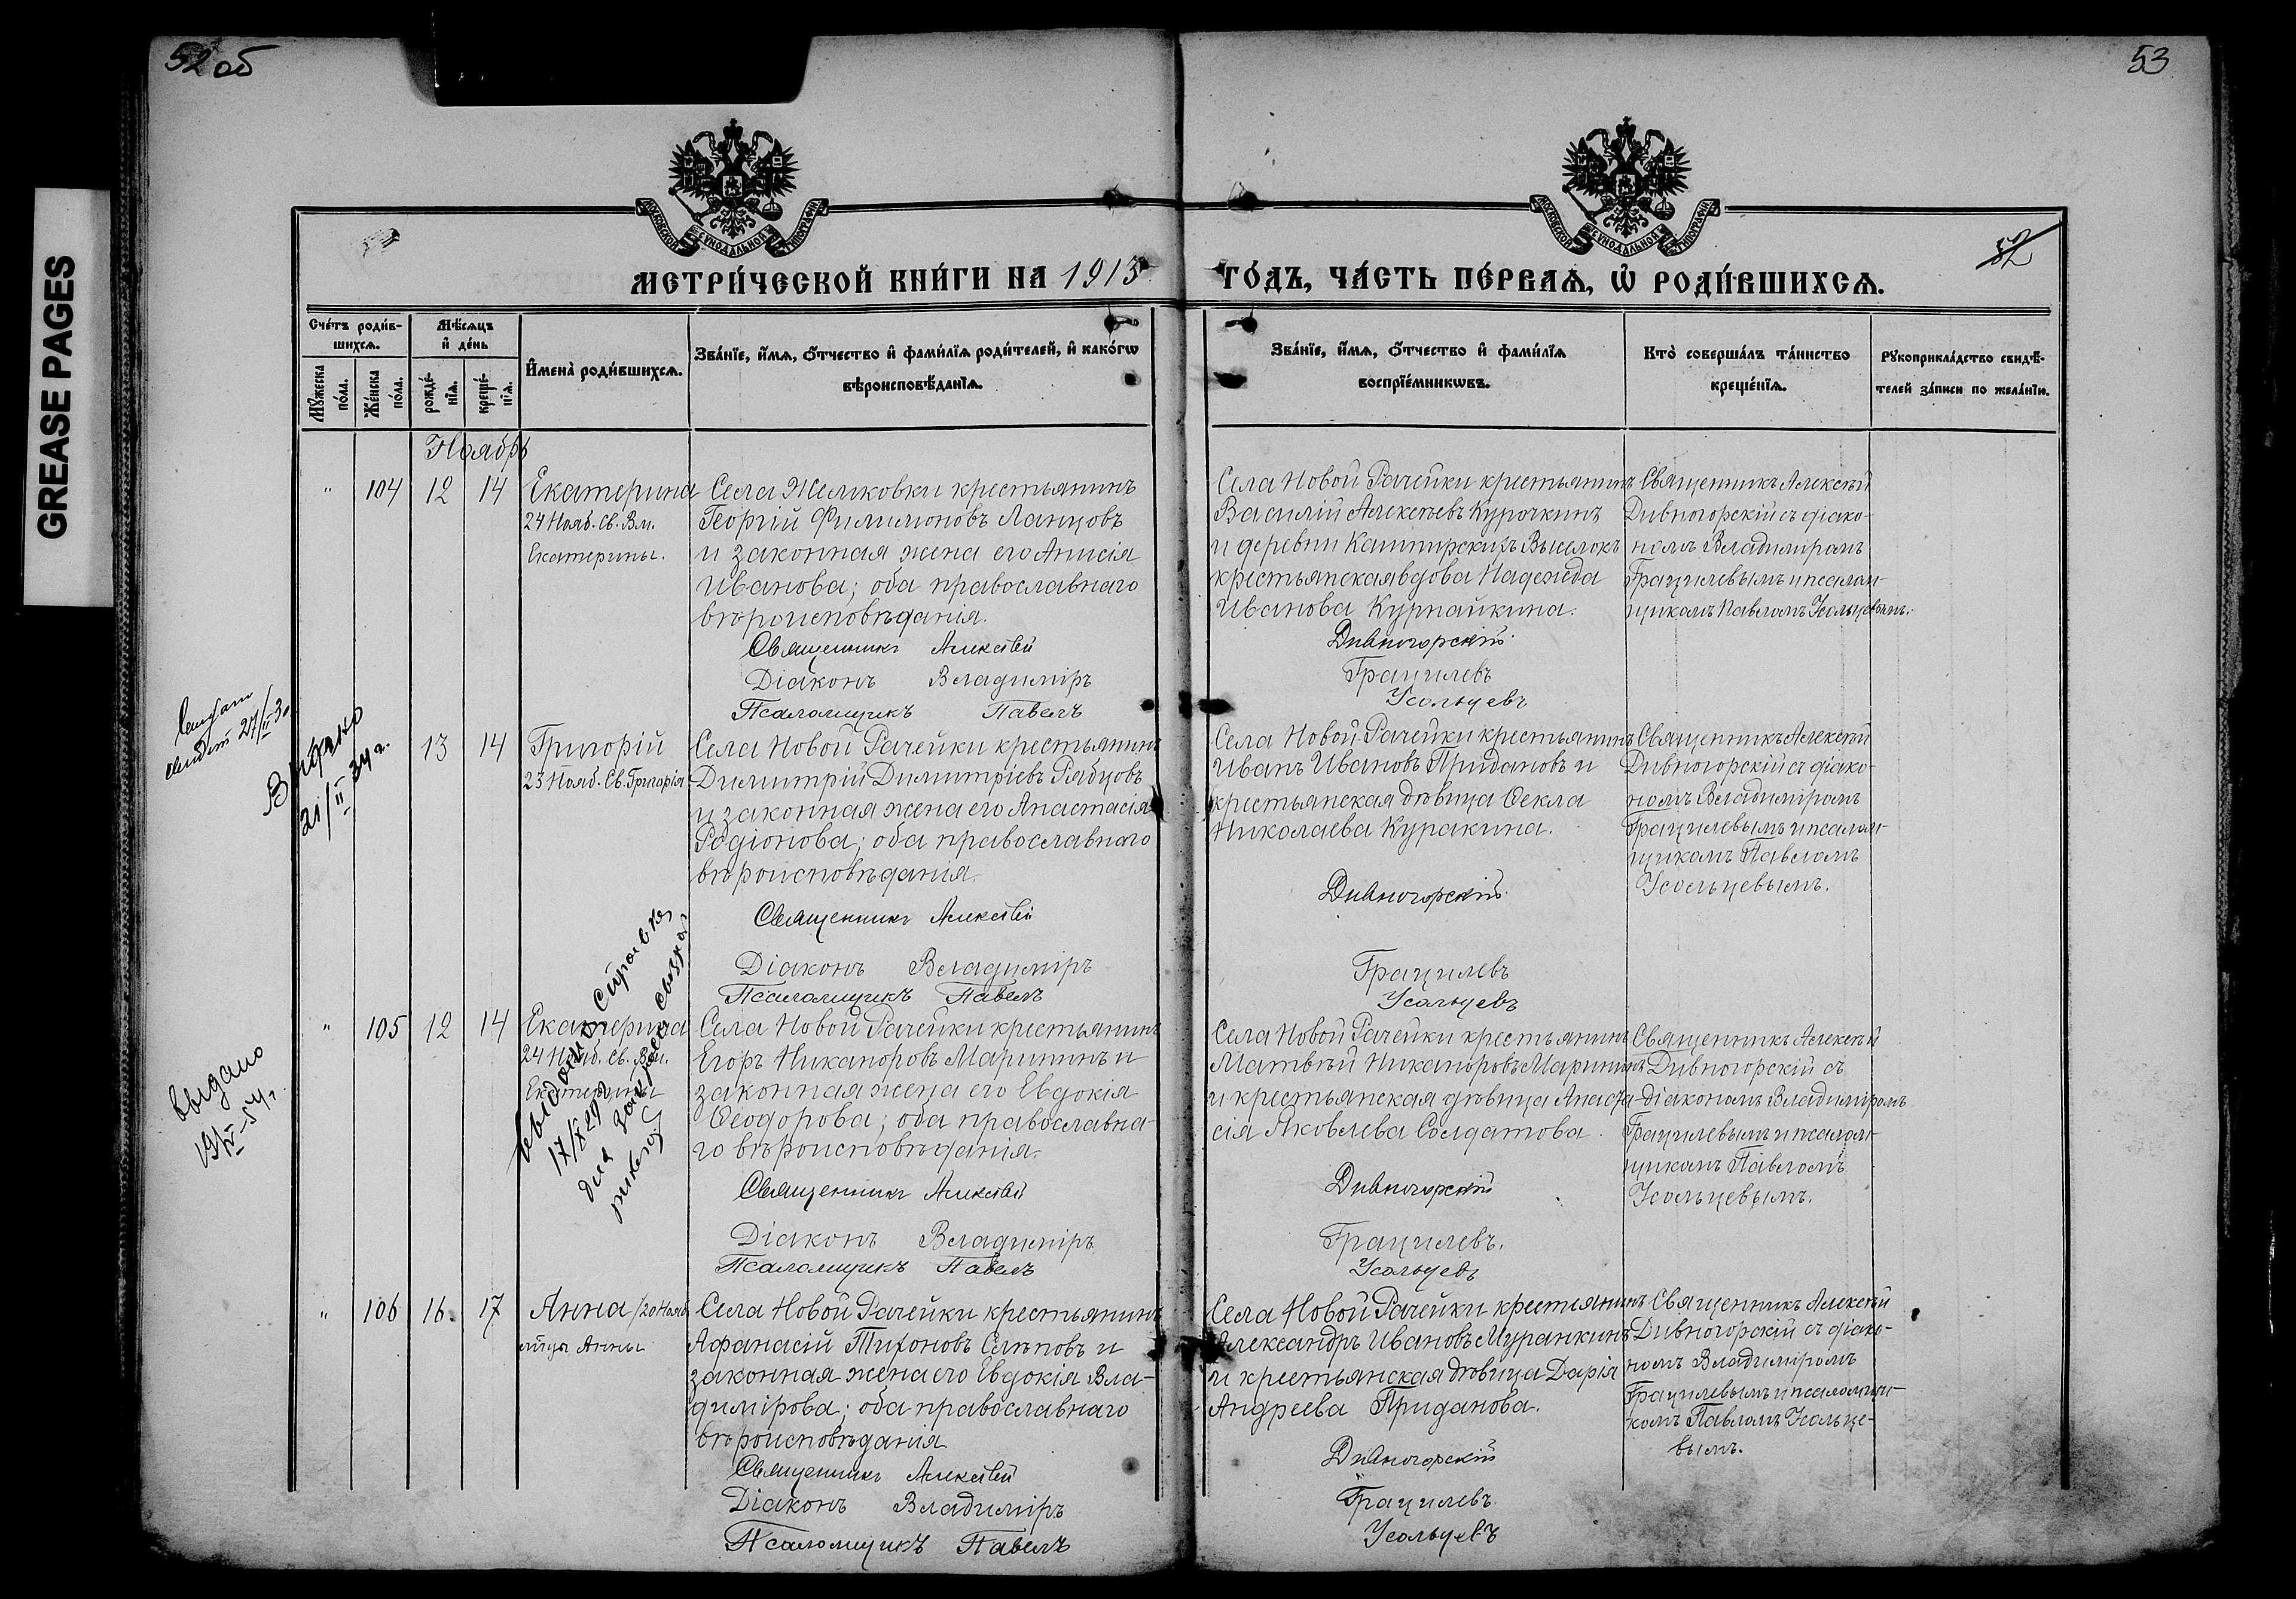 52 об
53
GREASE PAGES
МОСКОВСКОЙ СѴНОДАЛЬНОЙ ТИПОГРАФІИ
МОСКОВСКОЙ СѴНОДАЛЬНОЙ ТИПОГРАФІИ
52
МЕТРИ́ЧЕСКОЙ КНИ́ГИ НА 1913
ГО́ДЪ, ЧА́СТЬ ПЕ́РВАѦ, Ѡ҆ РОДИ́ВШИХСѦ.
Сче́тъ роди́в-
шихсѧ.
Мѣ́сѧцъ
и҆ де́нь
Мꙋ́жеска
по́ла.
Же́нска
по́ла.
рожде́-
нїѧ.
креще́-
нїѧ.
И҆мена̀ роди́вшихсѧ.
Зва́нїе, и҆́мѧ, ѻ҆́тчество и҆ фами́лїѧ роди́телей, и҆ како́гѡ
вѣроисповѣ́данїѧ.
Зва́нїе, и҆́мѧ, ѻ҆́тчество и҆ фами́лїѧ
воспрїе́мникѡвъ.
Кто̀ соверша́лъ та́инство
креще́нїѧ.
Рꙋкоприкла́дство свидѣ́-
телей за́писи по жела́нїю.
Ноябрь
" 104 12 14
Екатерина
24 Нояб. Св. Вм.
Екатерины.
Села Жемковки крестьянинъ
Георгій Филимоновъ Ланцовъ
и законная жена его Анисія
Иванова; оба православнаго
вѣроисповѣданія.
Священникъ Алексѣй
Діаконъ Владиміръ
Псаломщикъ Павелъ
Села Новой Рачейки крестьянинъ
Василій Алексѣевъ Курочкинъ
и деревни Каширскихъ Выселокъ
крестьянская вдова Надежда
Иванова Курнайкина.
Дивногорскій.
Грацилевъ
Усольцевъ
Священникъ Алексѣй
Дивногорскій съ діако-
номъ Владиміромъ
Грацилевымъ и псалом-
щикомъ Павломъ Усольцевымъ.
27/II-30
Выдано
21/II 34 г.
13 14
Григорій
23 Нояб. Св. Григорія
Села Новой Рачейки крестьянинъ
Димитрій Димитріевъ Рябцовъ
и законная жена его Анастасія
Родіонова; оба православнаго
вѣроисповѣданія.
Священникъ Алексѣй
Діаконъ Владиміръ
Псаломщикъ Павелъ
Села Новой Рачейки крестьянинъ
Иванъ Ивановъ Придановъ и
крестьянская дѣвица Ѳекла
Николаева Куракина.
Дивногорскій.
Грацилевъ
Усольцевъ
Священникъ Алексѣй
Дивногорскій съ діако-
номъ Владиміромъ
Грацилевымъ и псалом-
щикомъ Павломъ
Усольцевымъ.
Выдано
19/V-54 г.
" 105 12 14
Екатерина
24 Нояб. Св. Вм.
Екатерины
справка
17/X 29
для
Села Новой Рачейки крестьянинъ
Егоръ Никаноровъ Маринитъ и
законная жена его Евдокія
Ѳеодорова; оба православна-
го вѣроисповѣданія.
Священникъ Алексѣй
Діаконъ Владиміръ
Псаломщикъ Павелъ
Села Новой Рачейки крестьянинъ
Матвѣй Никаноровъ
и крестьянская дѣвица Анаста-
сія Яковлева Солдатова.
Дивногорскій
Грацилевъ.
Усольцевъ
Священникъ Алексѣй
Дивногорскій съ
діакономъ Владиміромъ
Грацилевымъ и псалом-
щикомъ Павломъ
Усольцевымъ.
" 106 16. 17
Анна /20 Нояб.
Анны
Села Новой Рачейки крестьянинъ
Афанасій Тихоновъ Слѣповъ и
законная жена его Евдокія Вла-
димірова; оба православнаго
вѣроисповѣданія
Священникъ Алексѣй
Діаконъ Владиміръ
Псаломщикъ Павелъ
Села Новой Рачейки крестьянинъ
Александръ Ивановъ Муранкинъ
и крестьянская дѣвица Дарія
Андреева Приданова.
Дивногорскій
Грацилевъ.
Усольцевъ
Священникъ Алексѣй
Дивногорскій съ діако-
номъ Владиміромъ
Грацилевымъ и псаломщи-
комъ Павломъ Усольце-
вымъ.